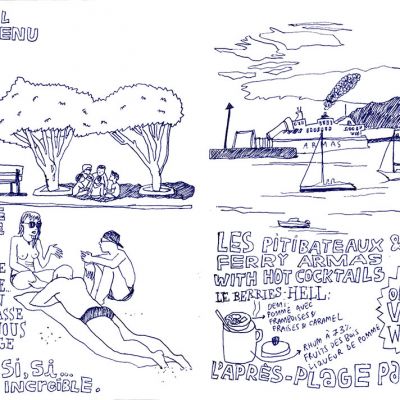 L
ENU
E
E
ASSE
OUS
GE
SI, SI...
INCROÏBLE.
ARMAS
LES PITIBATEAUX &
FERRY ARMAS
WITH HOT COCKTAILS
LE BERRIES-HELL:
DEMI-
POMME AVEC
FRAMBOISES &
FRAISES & CARAMEL
RHUM À 73%
FRUITS DES BOIS
LIQUEUR DE POMME
L'APRÈS-PLAGE PA
O
V
W